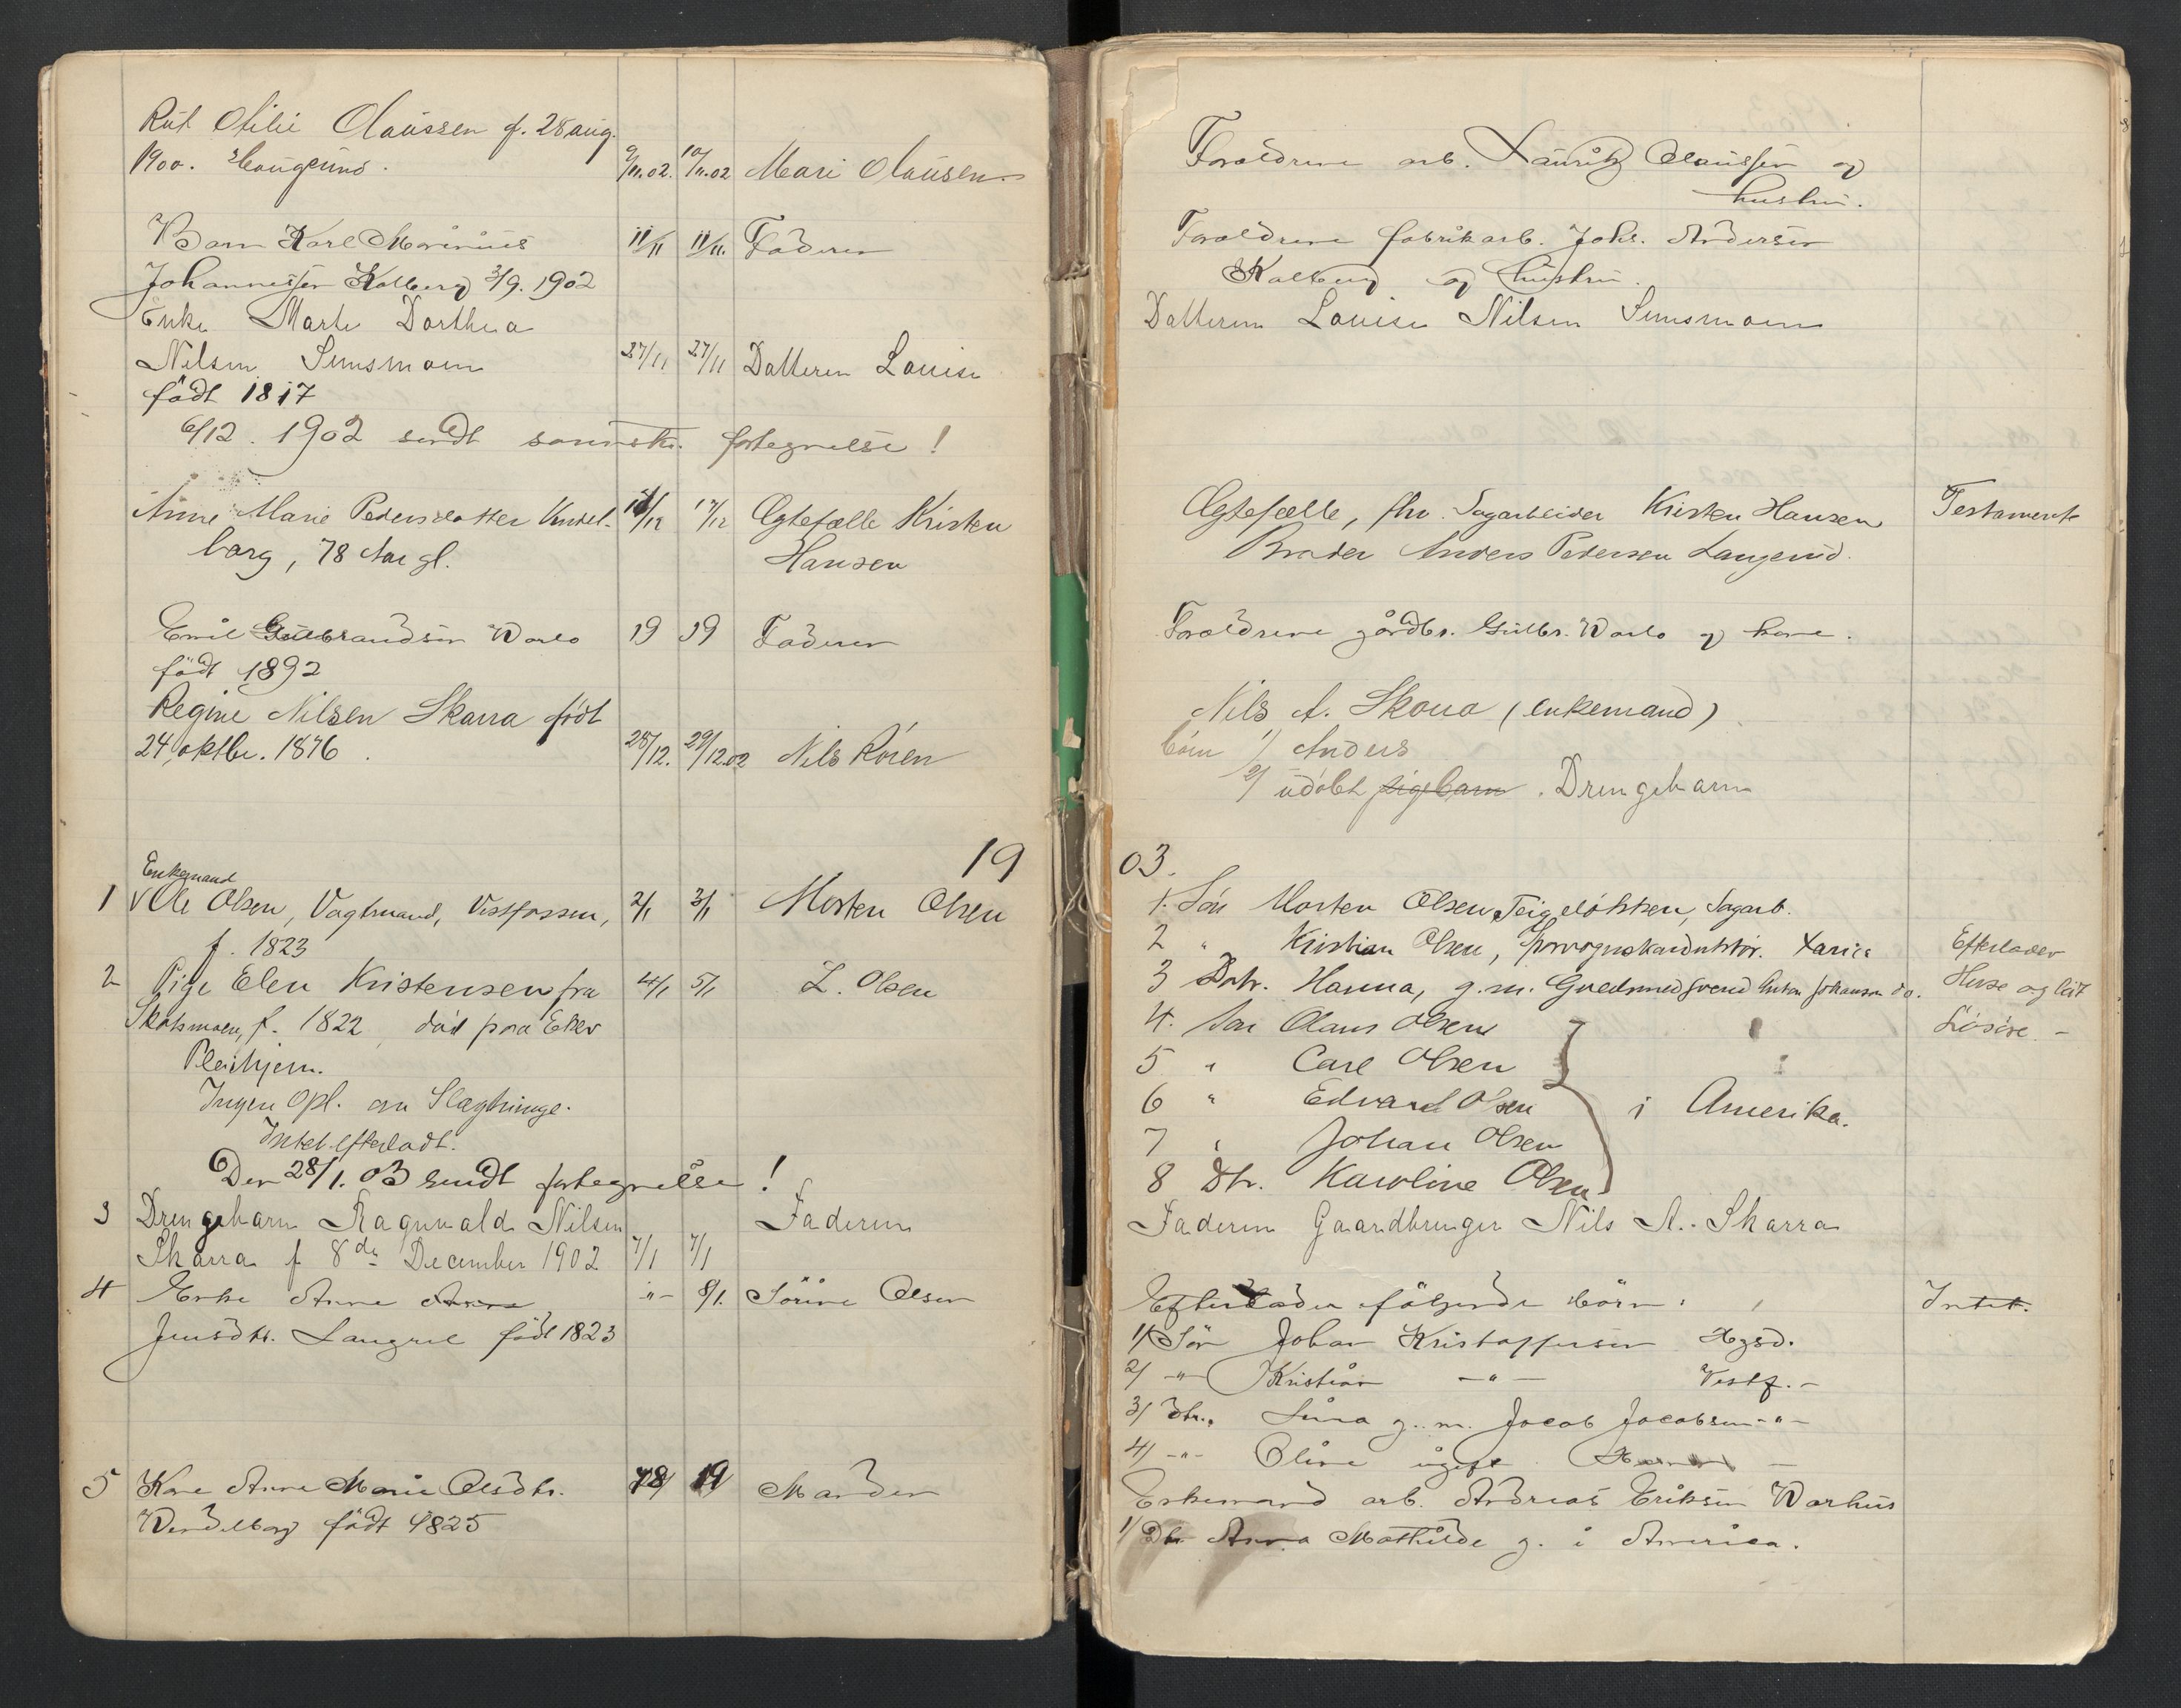 Rut Otilie Olaussen f. 28 aug.
1900. Haugsund. 9/11.02. 10/11.02 Mari Olausen
Barn Karl Marinius 11/11 11/11. Faderen
Johannessen Kolberg 3/9. 1902
Enke Marte Dorthea
Nilsen Simsmoen 27/11 27/11 Datteren Louise
født 1817
6/12. 1902 sendt fortegnelse!
Anne Marie Pedersdatter Vindel- 17/12 Ægtefælle Kristen
borg, 78 Aar gl. Hansen
Emil Gulbrandsen Warlo 19 19 Faderen
født 1892
Regine Nilsen Skarra født
24 oktbr. 1876. 28/12. 29/12.02 Nils
19
Enkemand
1 Ole Olsen, Vagtmand, Vestfossen, 2/1 3/1 Morten Olsen
f. 1823
2 Pige Elen Kristensen fra 4/1 5/1 L. Olsen
Skotsmoen, f. 1822, død paa Eker
Pleiehjem.
Ingen Opl. om Slægtninge.
Intet efterladt.
Den 28/1.03 sendt fortegnelse!
3 Drengebarn Ragnvald Nilsen Faderen
Skarra f 8de December 1902 7/1 7/1
4 Enke Anne Anne -"- 8/1. Sörine Olsen
Jensdtr. Langrel född 1823
5 Kone Anne Marie Olsdtr. 18/ 19 Manden
Wendelborg född 1825
Foroldrene arb. Lauritz Olaussen og
hustru.
Foroldrene fabrikarb. Johs. Andersen
Kolberg og hustru.
Datteren Louise Nilsen Simsmoen
Ægtefælle, fhv. Sagarbeider Kristen Hansen Testament
Broder Anders Pedersen Langerud.
Foroldrene gårdbr. Gulbr. Warlo og kone.
Nils A. Skara (enkemand)
børn 1/ Anders
2/ udöbt pigebarn. Drengebarn
03.
1. Søn Morten Olsen Teigeløkken, Sagarb.
2 " Kristian Olsen, Efterlader
3 Datr. Hanna, g.m. Guldsmed Svend Anton Johansen do. Huse og lidt
4. Søn Olaus Olsen Løsøre -
5 " Carl Olsen
6 " Edvard Olsen i Amerika.
7 " Johan Olsen
8 Dtr. Karoline Olsen
Faderen Gaardbruger Nils A. Skarra
Efterlader fölgende börn: Intet.
1/ Sön Johan Kristoffersen Hgsd.
2/ -"- Kristian -"- Vestf. -
3/ Dtr. g. m. Jacob Jacobsen -"-
4/ -"- Oline ugift
Enkemand arb. Andreas Eriksen Warhus
1/ Dtr. Anna Mathilde g. i America.